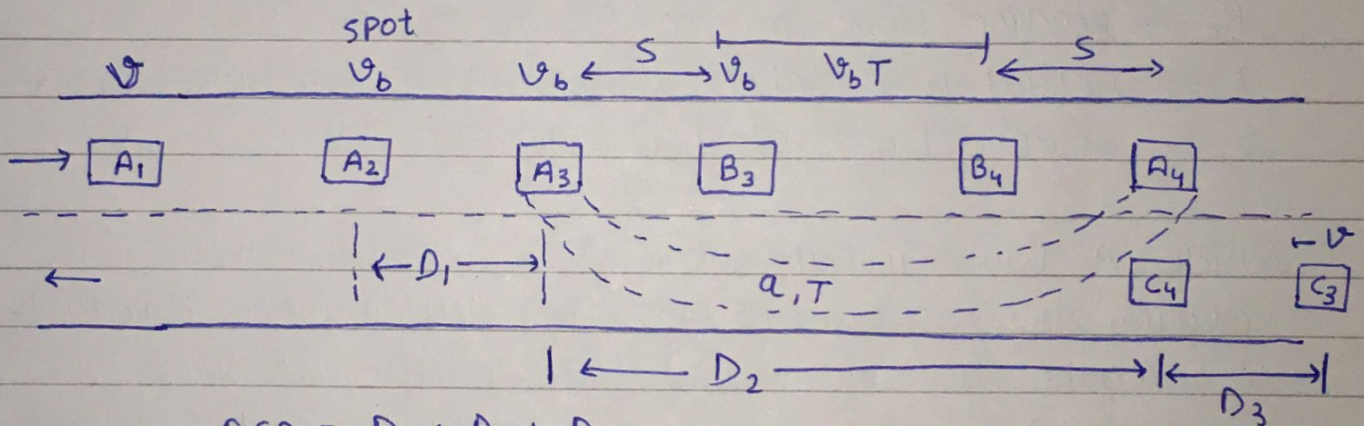 spot
v v_b v_b S v_b v_b T S
A₁ A₂ A₃ B₃ B₄ A₄
v
D₁ a, T C₄ C₃
D₂
D₃
OSD = D₁ + D₂ + D₃